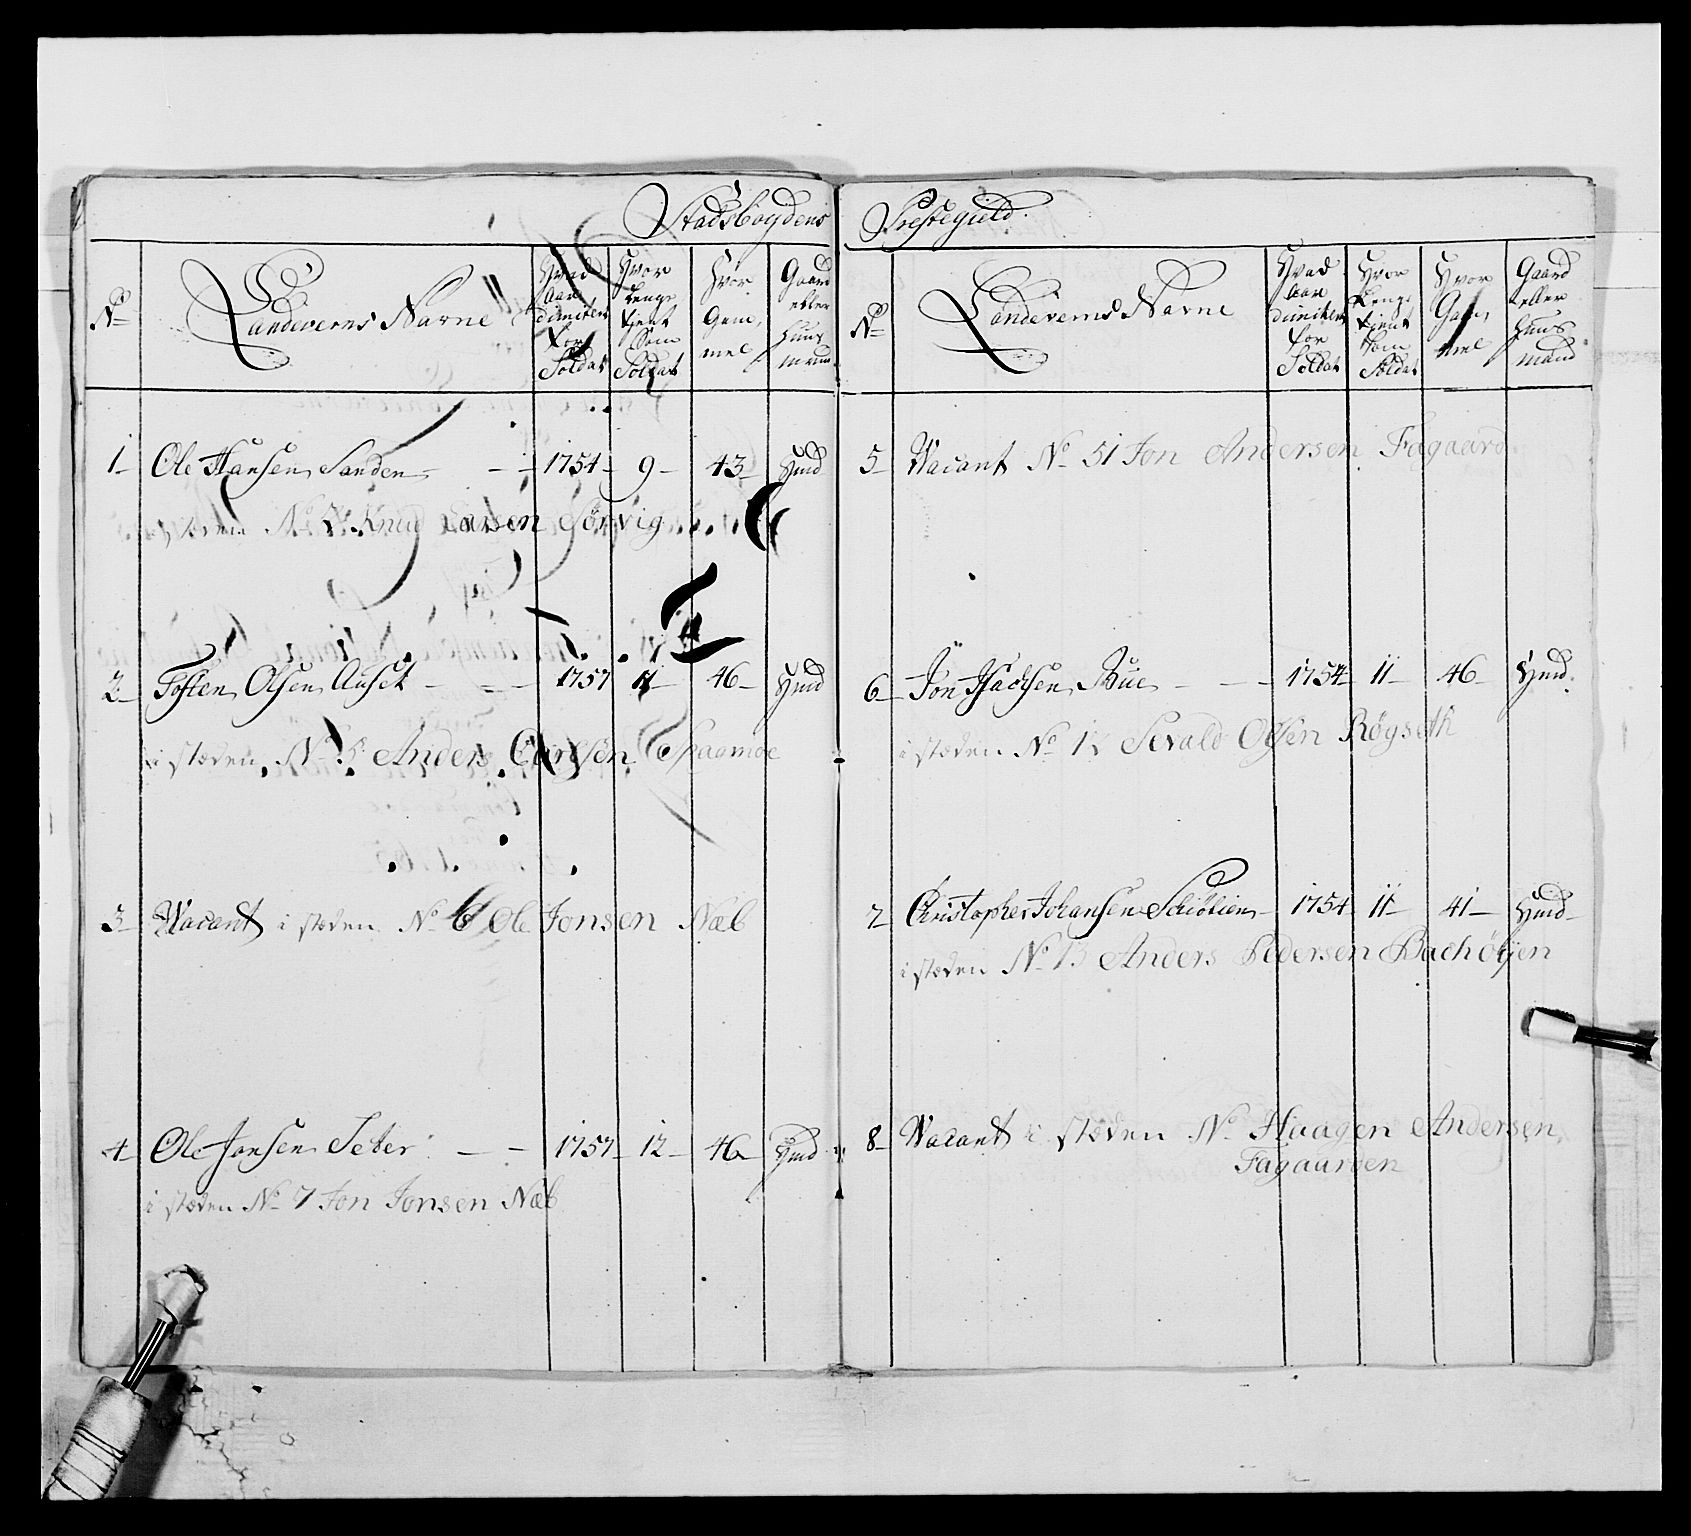 Stadsboydens Prestegield.
No
Landeverns Navne
Hvad Aar dimitert for Soldat
Hvor lenge tient Som Soldat
Hvor Gammel
Gaard eller Huusmand
1 Ole Hansen Sanden 1754 9 43 Hmd
i stæden No Knud Larsen Sørvig
2 Tosten Olsen Auset 1757 11 46 Hmd
i stæden No 5 Anders Skaamoe
3 Vacant i stæden No 6 Ole Jonsen Næb
4 Ole Jonsen Seter 1757 12 46 Hmd
i stæden No 7 Jon Jonsen Næb
No
Landeverns Navne
Hvad Aar dimitert for Soldat
Hvor lenge tient Som Soldat
Hvor Gammel
Gaard eller Huusmand
5 Vacant No 51 Jon Andersen Fagaard
6 Jon Bue 1754 11 46 Hmd.
i stæden No Sevald Olsen Røgseth
7 Christopher Johansen 1754 11 41 Hmd
i stæden No Anders Pedersen Bachøyen
8 Vacant i stæden No Haagen Andersen
Fagaarden